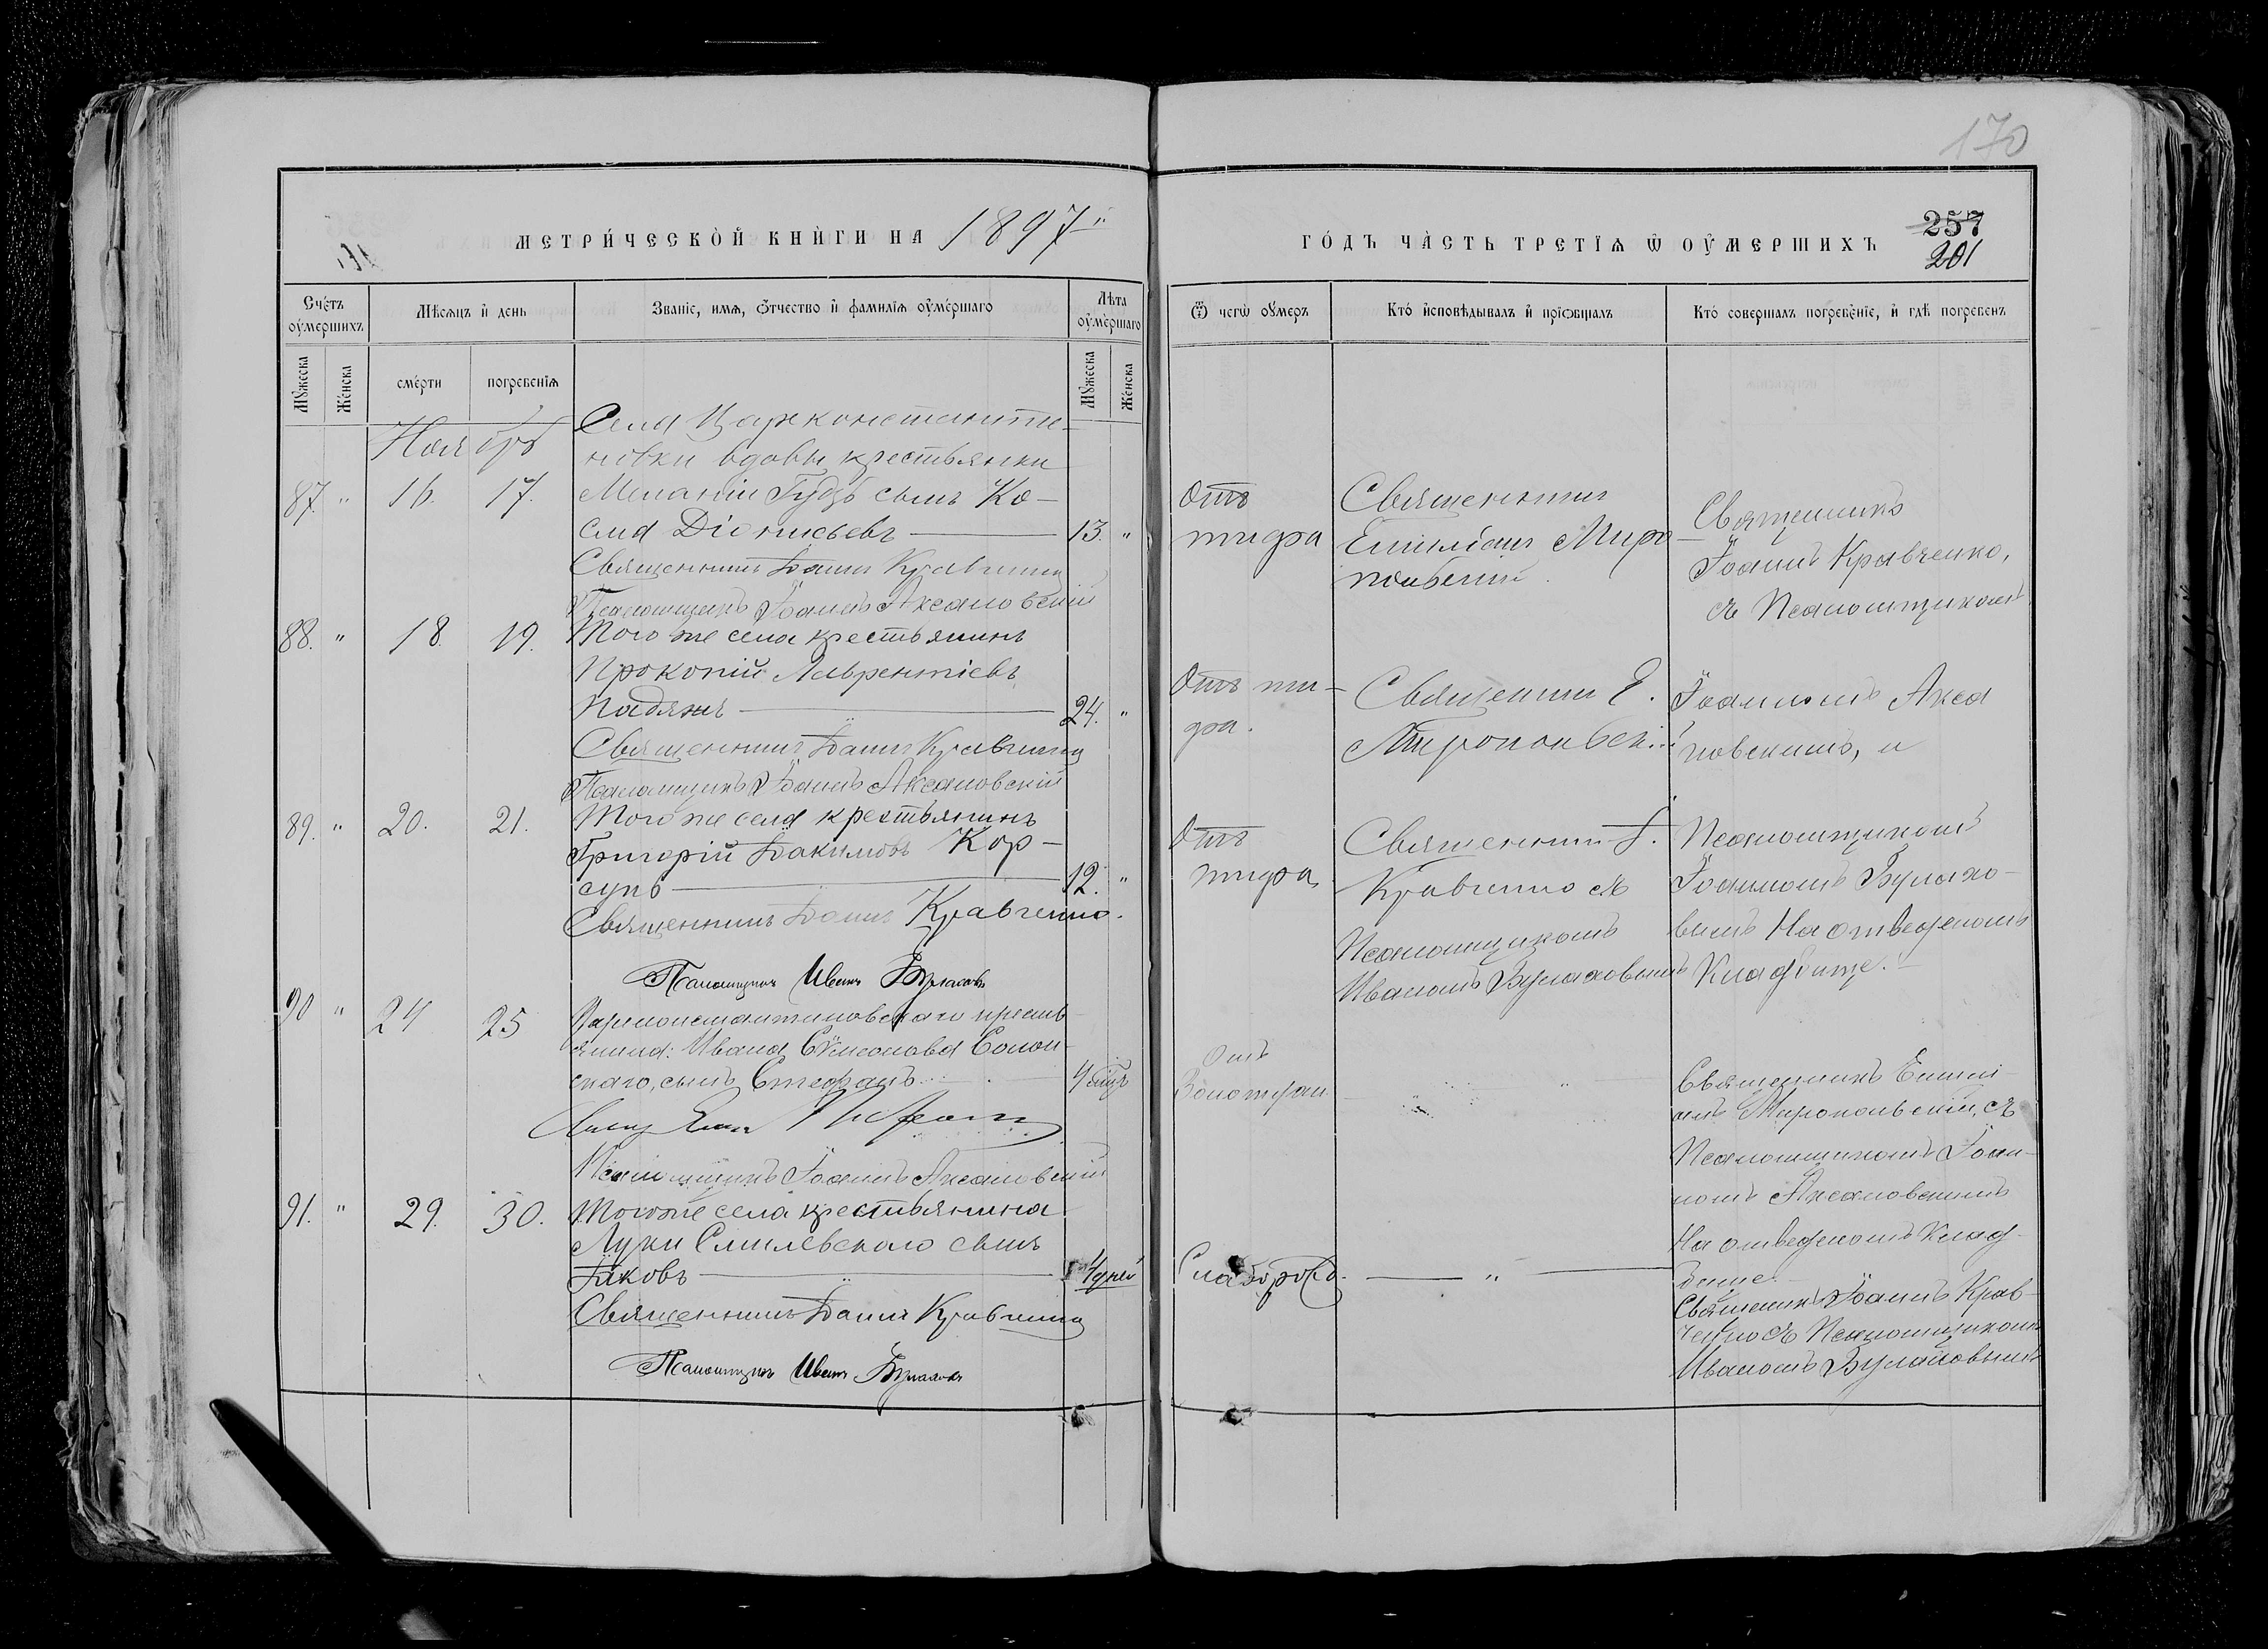 170
МЕТРИ́ЧЕСКОЙ КНИ́ГИ НА 1897
ГО́ДЪ ЧА́СТЬ ТРЕТІѦ Ѡ ОУ҆МЕРШИХЪ
257
201
Сче́тъ оу҆ме́ршихъ
Мѣ́сѧцъ и҆ день
Зва́нїе, имѧ, ѻ҆́тчество и҆ фами́лїѧ оу҆ме́ршагѡ
Лѣ́та оу҆ме́ршагѡ
Ѿ чегѡ̀ оу҆́меръ
Кто́ и҆сповѣ́дывалъ и҆ прїѡбща́лъ
Кто́ соверша́лъ погребе́нїе, и҆ гдѣ̀ погребенъ
Мꙋ́жеска
Же́нска
сме́рти
погребе́нїѧ
Мꙋ́жеска
Же́нска
Ноябрь
Села Царконстанти-
новки вдовы крестьянки
87. " 16. 17. Меланіи Гудзь сынъ Ко-
сма Діонисьевъ 13. "
Священникъ Іоаннъ Кравченко
Псаломщикъ Іоаннъ Аксановскій
Отъ
тифа
Священникъ
Емиліанъ Миро-
польскій.
Священникъ
Іоаннъ Кравченко,
съ Псаломщикомъ
88. " 18. 19. Того же села крестьянинъ
Прокопій Лаврентіевъ
24. "
Священникъ Іоаннъ Кравченко
Псаломщикъ Іоаннъ Аксановскій
Отъ ти-
фа.
Священникъ Е.
Миропольскій
Іоанномъ Акса
новскимъ, и
89. " 20. 21. Того же села крестьянинъ
Григорій Іоакимовъ Кор-
сунь 12. "
Священникъ Іоаннъ Кравченко.
Псаломщикъ Иванъ Булаховъ
Отъ
тифа
Священникъ І.
Кравченко съ
Псаломщикомъ
Иваномъ Булаховымъ
Псаломщикомъ
Іоанномъ Булахо-
вымъ На отведеномъ
Кладбище.
90 " 24 25 Царконстантиновскаго кресть-
янина: Ивана Сѵмеонова Солон-
скаго, сынъ Стефанъ 4 мѣс
Псаломщикъ Іоаннъ Аксановскій
Отъ
Золотухи
"
Священникъ Емилі-
анъ Миропольскій, съ
Псаломщикомъ Іоан-
номъ Аксановскимъ
На отведеномъ Клад-
бище.
91. " 29. 30. Того же села крестьянина
Луки Смилевскаго сынъ
Іаковъ 4 дней
Священникъ Іоаннъ Кравченко
Псаломщикъ Иванъ Булаховъ
Слаборожд.
"
Священникъ Іоаннъ Крав-
ченко съ Псаломщикомъ
Иваномъ Булаховымъ